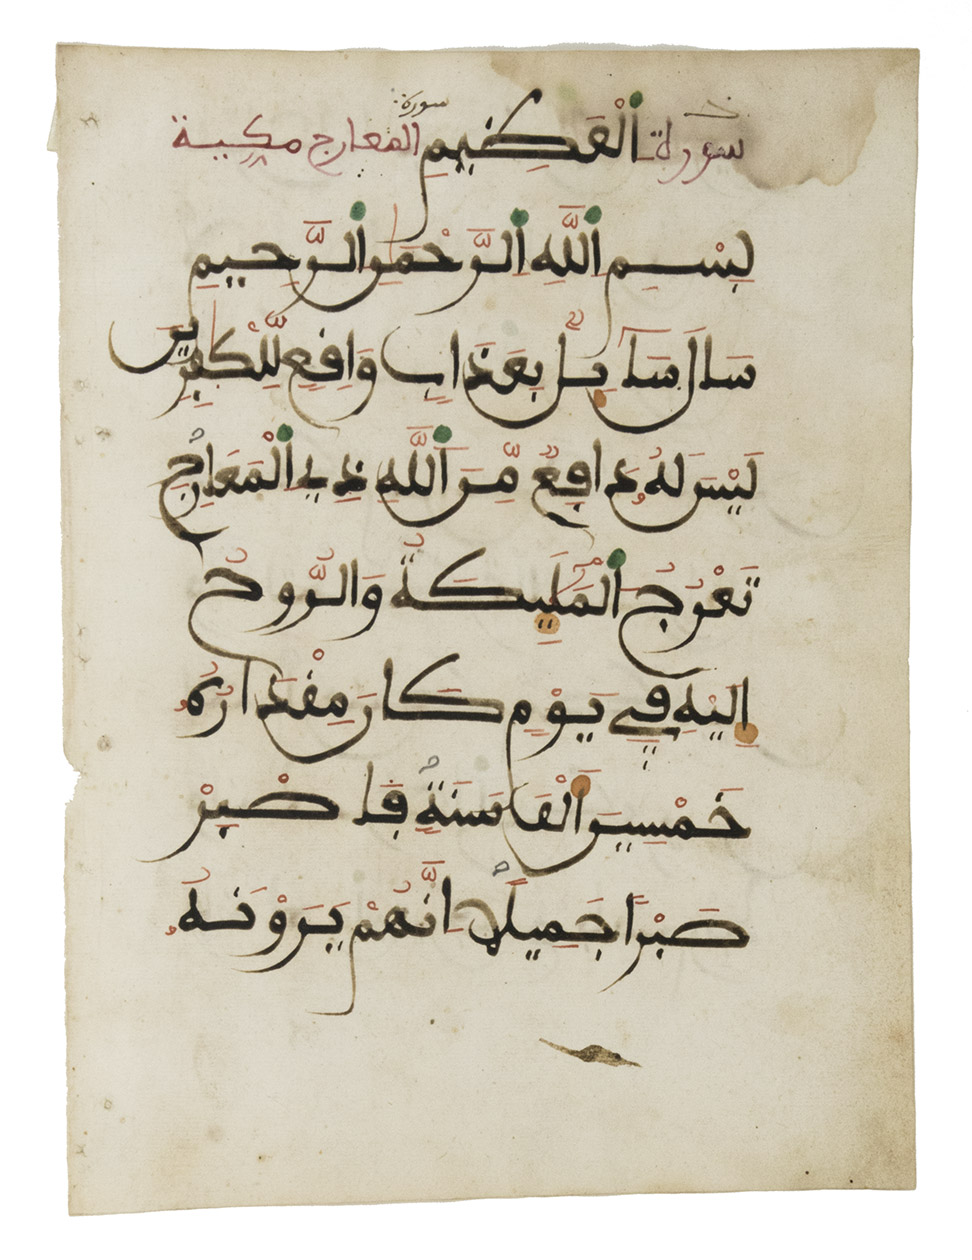 سورة
سورة الْعَظِيمِ المعارج مكية
بِسْمِ اللَّهِ الرَّحْمَٰنِ الرَّحِيمِ
سَالَ سَآيِلٌ بِعَذَابٍ وَاقِعٍ لِّلْكَٰفِرِينَ
لَيْسَ لَهُ دَافِعٌ مِّنَ اللَّهِ ذِي الْمَعَارِجِ
تَعْرُجُ الْمَلَٰٓيِكَةُ وَالرُّوحُ
إِلَيْهِ فِي يَوْمٍ كَانَ مِقْدَارُهُ
خَمْسِينَ أَلْفَ سَنَةٍ فَاصْبِرْ
صَبْرًا جَمِيلًا إِنَّهُمْ يَرَوْنَهُ